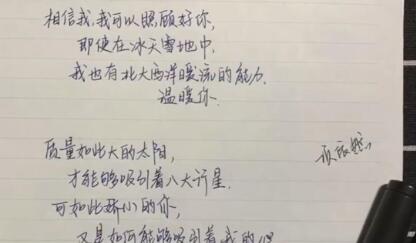 相信我,我可以照顾好你,
即使在冰天雪地中,
我也有北大西洋暖流的能力.
温暖你.
质量如此大的太阳,
才能够吸引着八大行星.
可如此娇小的你,
又是如何能够吸引着我的